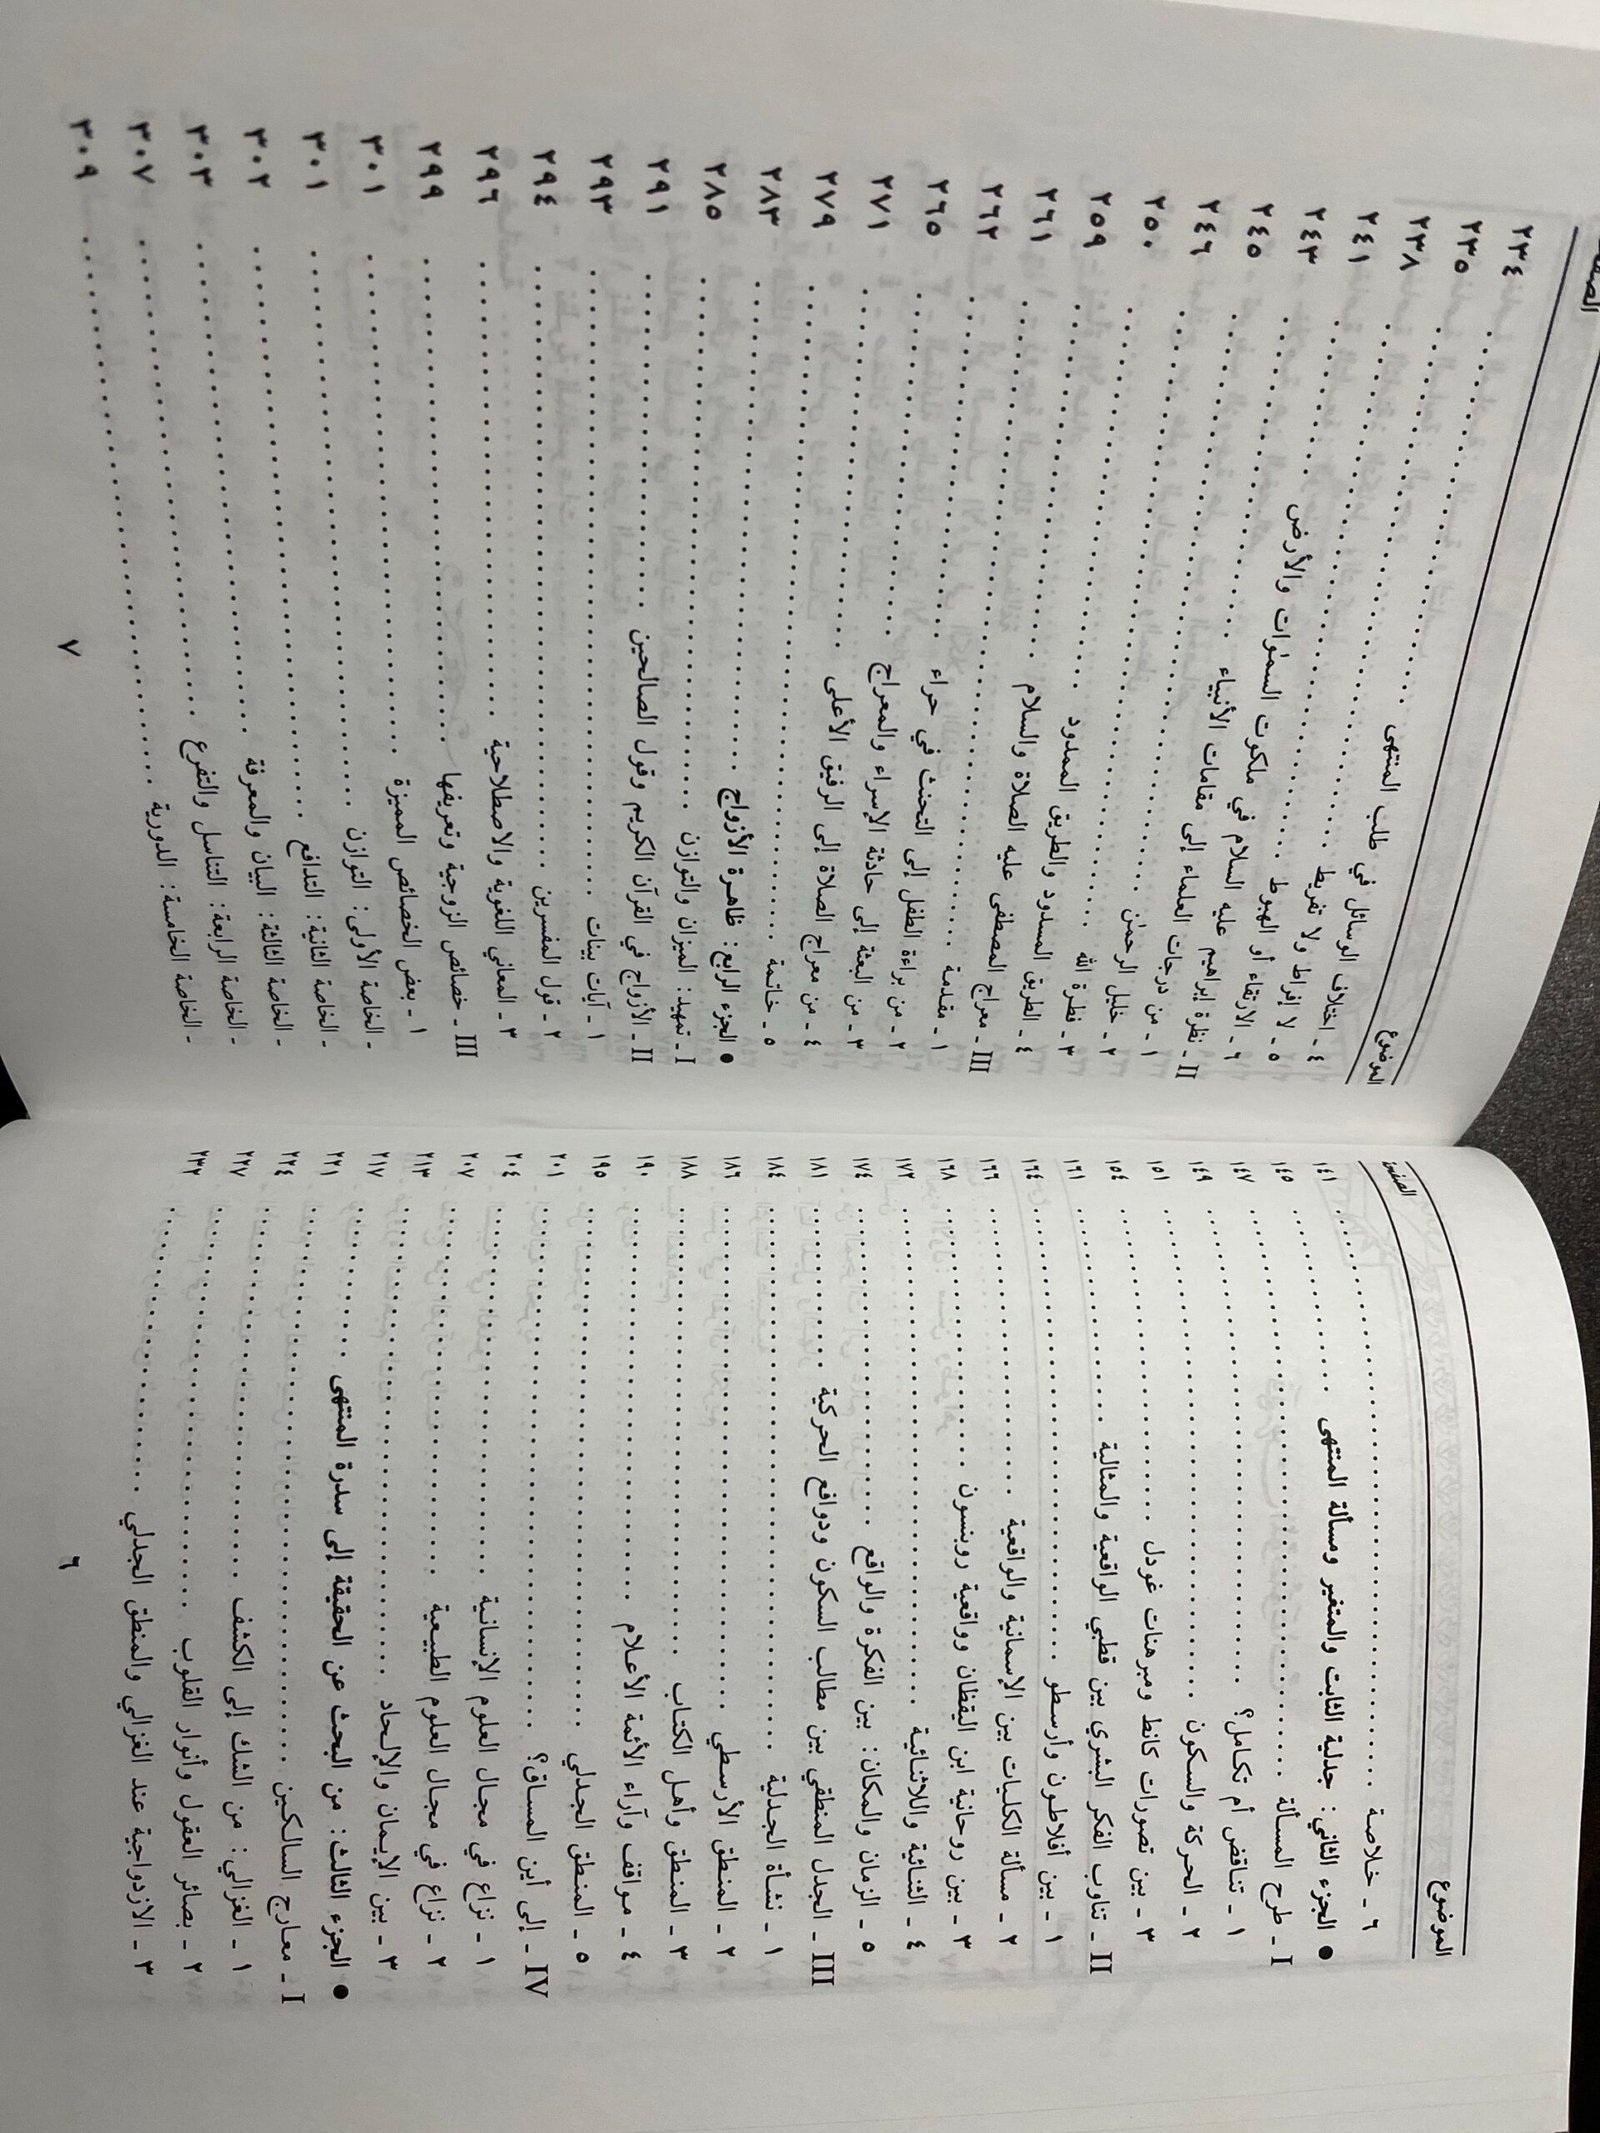 الموضوع الصفحة
٦ ـ خلاصة ........ ١٤١
● الجزء الثاني: جدلية الثابت والمتغير ومسألة المنتهى ........ ١٤٥
I ـ طرح المسألة ........ ١٤٧
١ ـ تناقض أم تكامل؟ ........ ١٤٩
٢ ـ الحركة والسكون ........ ١٥١
٣ ـ بين تصورات كانط ومبرهنات غودل ........ ١٥٤
II ـ تناوب الفكر البشري بين قطبي الواقعية والمثالية ........ ١٦١
١ ـ بين أفلاطون وأرسطو ........ ١٦٤
٢ ـ مسألة الكليات بين الإسمانية والواقعية ........ ١٦٦
٣ ـ بين روحانية ابن اليقظان وواقعية روبنسون ........ ١٦٨
٤ ـ الثنائية واللاثنائية ........ ١٧٢
٥ ـ الزمان والمكان: بين الفكرة والواقع ........ ١٧٤
III ـ الجدل المنطقي بين مطالب السكون ودوافع الحركية ........ ١٨١
١ ـ نشأة الجدلية ........ ١٨٤
٢ ـ المنطق الأرسطي ........ ١٨٦
٣ ـ المنطق وأهل الكتاب ........ ١٨٨
٤ ـ مواقف وآراء الأئمة الأعلام ........ ١٩٠
٥ ـ المنطق الجدلي ........ ١٩٥
IV ـ إلى أين المساق؟ ........ ٢٠١
١ ـ نزاع في مجال العلوم الإنسانية ........ ٢٠٤
٢ ـ نزاع في مجال العلوم الطبيعية ........ ٢٠٧
٣ ـ بين الإيمان والإلحاد ........ ٢١٣
● الجزء الثالث: من البحث عن الحقيقة إلى سدرة المنتهى ........ ٢١٧
I ـ معارج السالكين ........ ٢٢١
١ ـ الغزالي: من الشك إلى الكشف ........ ٢٢٤
٢ ـ بصائر العقول وأنوار القلوب ........ ٢٢٧
٣ ـ الازدواجية عند الغزالي والمنطق الجدلي ........ ٢٣٢
٦
الموضوع
٤ ـ اختلاف الوسائل في طلب المنتهى ........ ٢٣٤
٥ ـ لا إفراط ولا تفريط ........ ٢٣٥
٦ ـ الارتقاء أو الهبوط ........ ٢٣٨
II ـ نظرة إبراهيم عليه السلام في ملكوت السمٰوات والأرض ........ ٢٤١
١ ـ من درجات العلماء إلى مقامات الأنبياء ........ ٢٤٣
٢ ـ خليل الرحمٰن ........ ٢٤٥
٣ ـ فطرة الله ........ ٢٤٦
٤ ـ الطريق المسدود والطريق الممدود ........ ٢٥٠
III ـ معراج المصطفى عليه الصلاة والسلام ........ ٢٥٩
١ ـ مقدمة ........ ٢٦١
٢ ـ من براءة الطفل إلى التحنث في حراء ........ ٢٦٢
٣ ـ من البعثة إلى حادثة الإسراء والمعراج ........ ٢٦٥
٤ ـ من معراج الصلاة إلى الرفيق الأعلى ........ ٢٧١
٥ ـ خاتمة ........ ٢٧٩
● الجزء الرابع: ظاهرة الأزواج ........ ٢٨٣
I ـ تمهيد: الميزان والتوازن ........ ٢٨٥
II ـ الأزواج في القرآن الكريم وقول الصالحين ........ ٢٩١
١ ـ آيات بينات ........ ٢٩٣
٢ ـ قول المفسرين ........ ٢٩٤
٣ ـ المعاني اللغوية والاصطلاحية ........ ٢٩٦
III ـ خصائص الزوجية وتعريفها ........ ٢٩٩
١ ـ بعض الخصائص المميزة ........ ٣٠١
ـ الخاصة الأولى: التوازن ........ ٣٠١
ـ الخاصة الثانية: التدافع ........ ٣٠٢
ـ الخاصة الثالثة: البيان والمعرفة ........ ٣٠٣
ـ الخاصة الرابعة: التناسل والتفرع ........ ٣٠٧
ـ الخاصة الخامسة: الدورية ........ ٣٠٩
٧